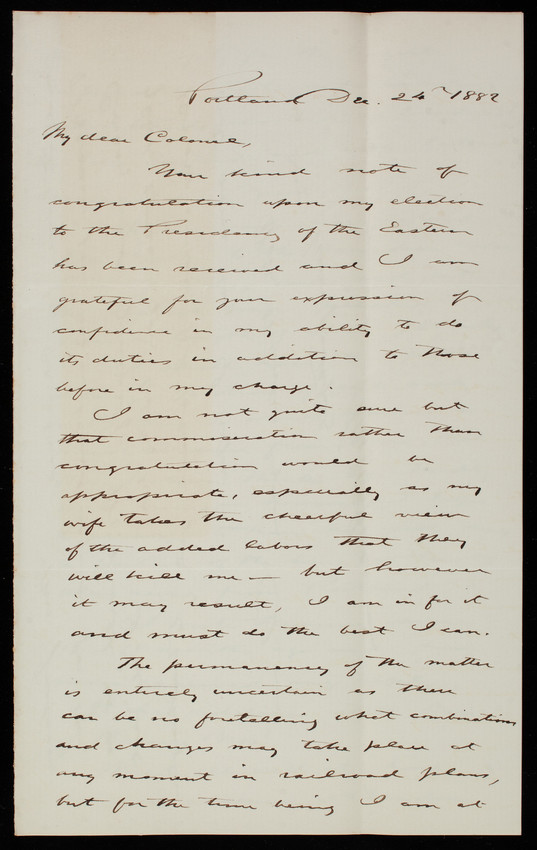 Portland Dec. 24th 1882
My dear Colonel,
Your kind note of
congratulation upon my election
to the Presidency of the Eastern
has been received and I am
grateful for your expression of
confidence in my ability to do
its duties in addition to those
before in my charge.
I am not quite sure but
that commiseration rather than
congratulation would be
appropriate, especially as my
wife takes the cheerful view
of the added labors that they
will kill me — but however
it may result, I am in for it
and must do the best I can.
The permanency of the matter
is entirely uncertain as there
can be no foretelling what combinations
and changes may take place at
any moment in railroad plans,
but for the time being I am at